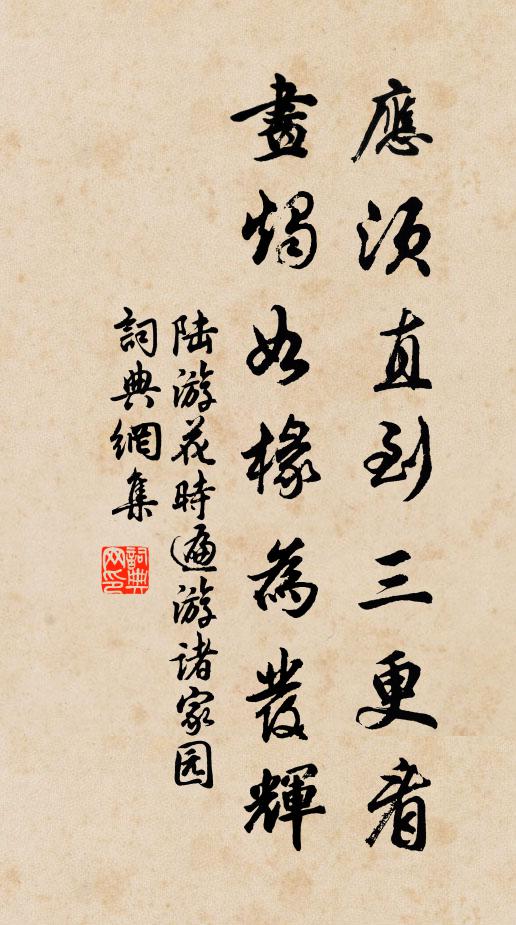 應須直到三更看
畫燭如椽為發輝
陆游花時遍游诸家园
詞典網集
詞典網印